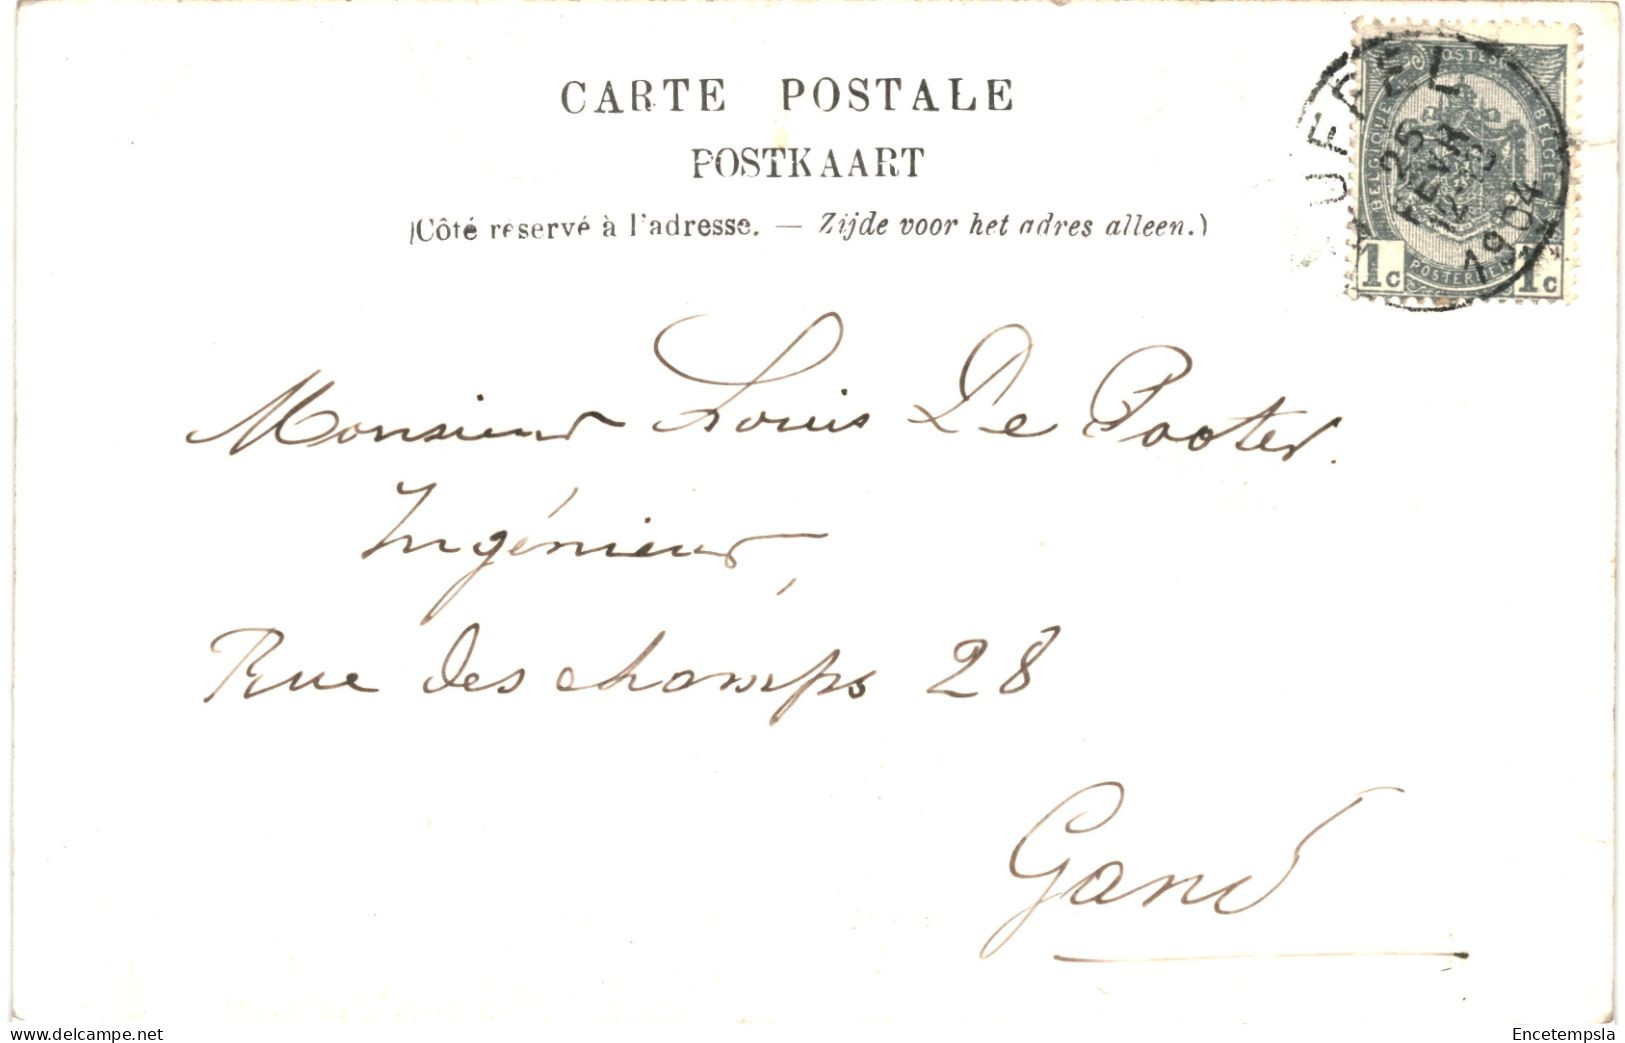 CARTE POSTALE
POSTKAART
(Côté réservé à l'adresse. — Zijde voor het adres alleen.)
POSTES
BELGIQUE
BELGIË
POSTERIJEN
1c 1c
UFFEL
25
FEVR
1904
Monsieur Louis De Pooter.
Ingénieur,
Rue des champs 28
Gand
delcampe.net
Encetempsla